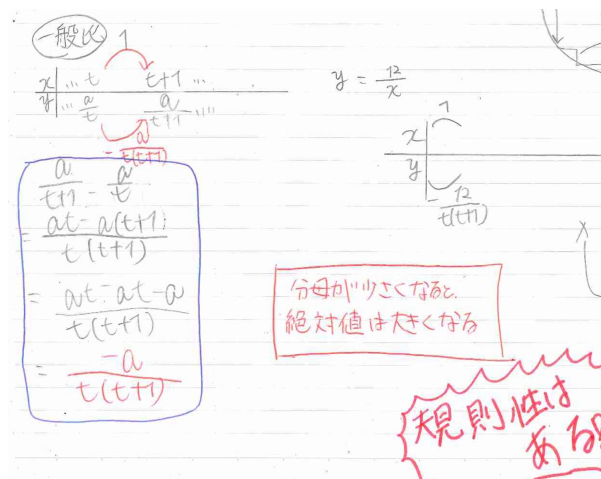 一般比
1
x … t t+1 …
y … a/t a/(t+1) …
-a/(t(t+1))
a/(t+1) - a/t
= (at-a(t+1))/(t(t+1))
= (at-at-a)/(t(t+1))
= -a/(t(t+1))
y = 12/x
1
x
y
-12/(t(t+1))
x
分母が少さくなると、
絶対値は大きくなる
規則性は
ある